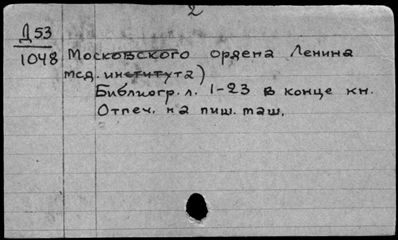 2
Д53
1048 Московского ордена Ленина
мед. института)
Библиогр. л. 1-23 в конце кн.
Отпеч. на пиш. маш.